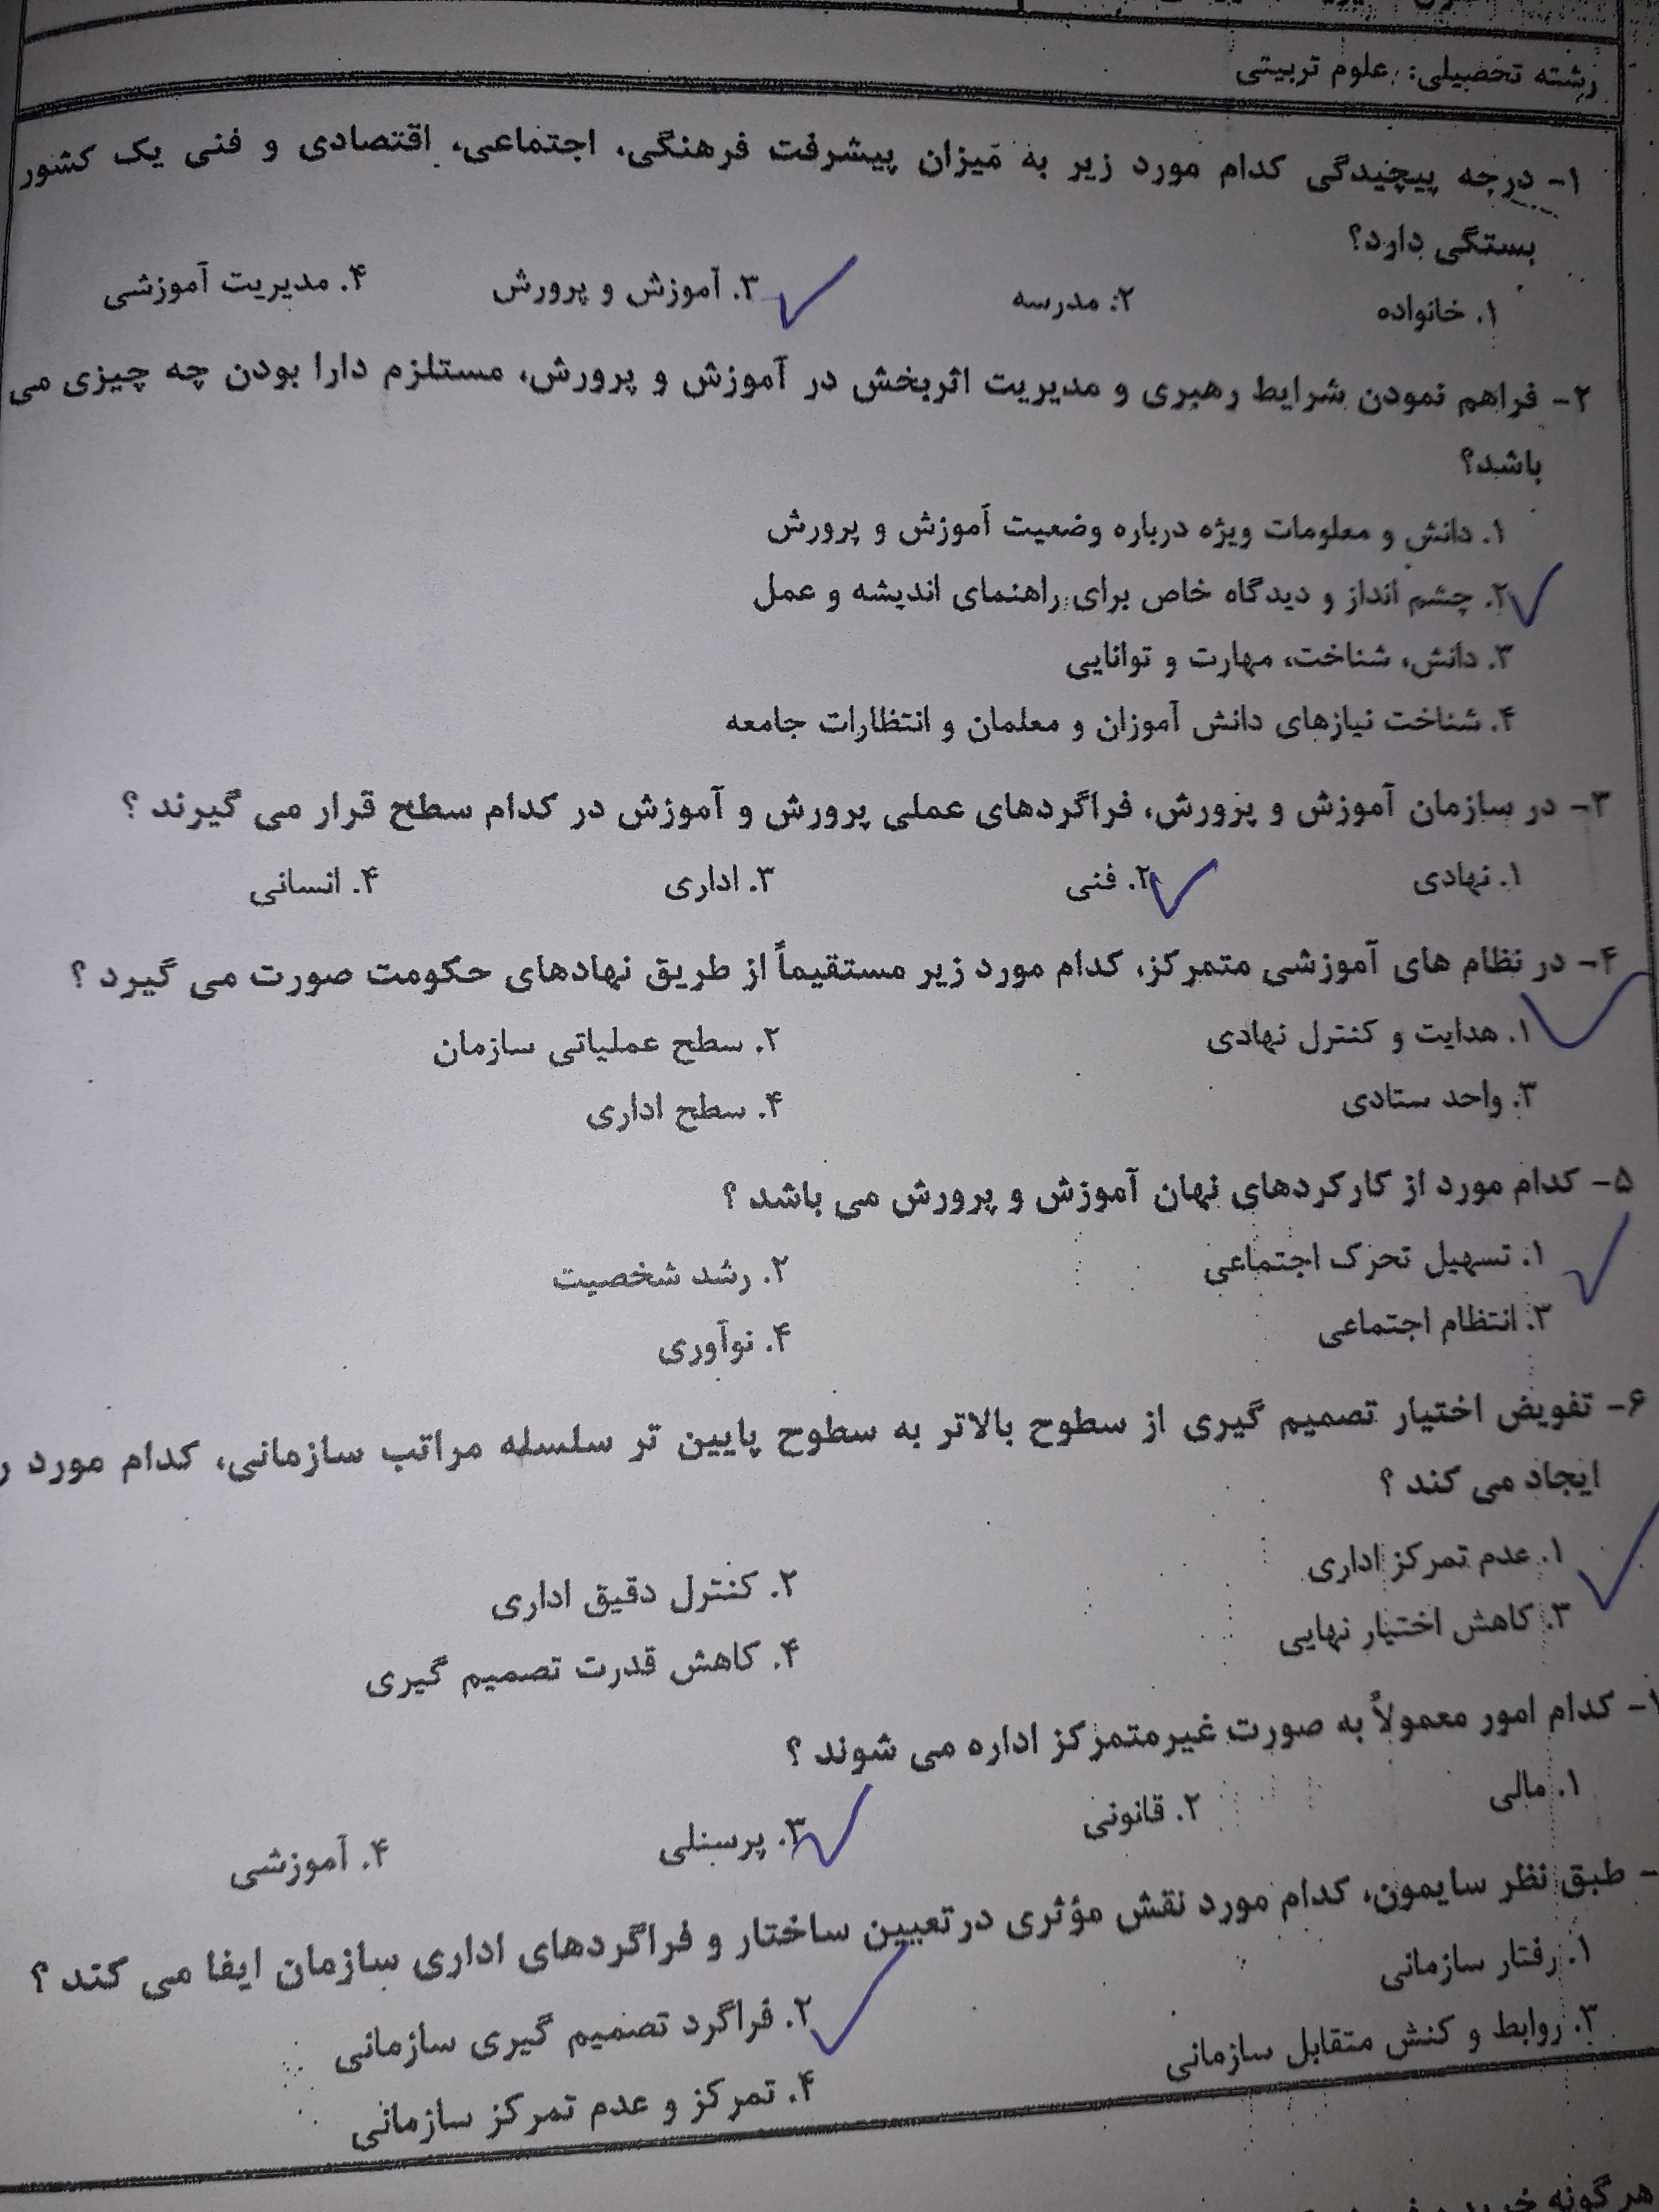 رشته تحصیلی: علوم تربیتی
۱- درجه پیچیدگی کدام مورد زیر به میزان پیشرفت فرهنگی، اجتماعی، اقتصادی و فنی یک کشور
بستگی دارد؟
۱. خانواده ۲. مدرسه ۳. آموزش و پرورش ۴. مدیریت آموزشی
۲- فراهم نمودن شرایط رهبری و مدیریت اثربخش در آموزش و پرورش، مستلزم دارا بودن چه چیزی می
باشد؟
۱. دانش و معلومات ویژه درباره وضعیت آموزش و پرورش
۲. چشم انداز و دیدگاه خاص برای راهنمای اندیشه و عمل
۳. دانش، شناخت، مهارت و توانایی
۴. شناخت نیازهای دانش آموزان و معلمان و انتظارات جامعه
۳- در سازمان آموزش و پرورش، فراگردهای عملی پرورش و آموزش در کدام سطح قرار می گیرند ؟
۱. نهادی ۲. فنی ۳. اداری ۴. انسانی
۴- در نظام های آموزشی متمرکز، کدام مورد زیر مستقیماً از طریق نهادهای حکومت صورت می گیرد ؟
۱. هدایت و کنترل نهادی ۲. سطح عملیاتی سازمان
۳. واحد ستادی ۴. سطح اداری
۵- کدام مورد از کارکردهای نهان آموزش و پرورش می باشد ؟
۱. تسهیل تحرک اجتماعی ۲. رشد شخصیت
۳. انتظام اجتماعی ۴. نوآوری
۶- تفویض اختیار تصمیم گیری از سطوح بالاتر به سطوح پایین تر سلسله مراتب سازمانی، کدام مورد ر
ایجاد می کند ؟
۱. عدم تمرکز اداری ۲. کنترل دقیق اداری
۳. کاهش اختیار نهایی ۴. کاهش قدرت تصمیم گیری
- کدام امور معمولاً به صورت غیرمتمرکز اداره می شوند ؟
۱. مالی ۲. قانونی ۳. پرسنلی ۴. آموزشی
- طبق نظر سایمون، کدام مورد نقش مؤثری در تعیین ساختار و فراگردهای اداری سازمان ایفا می کند ؟
۱. رفتار سازمانی ۲. فراگرد تصمیم گیری سازمانی
۳. روابط و کنش متقابل سازمانی ۴. تمرکز و عدم تمرکز سازمانی
هر گونه